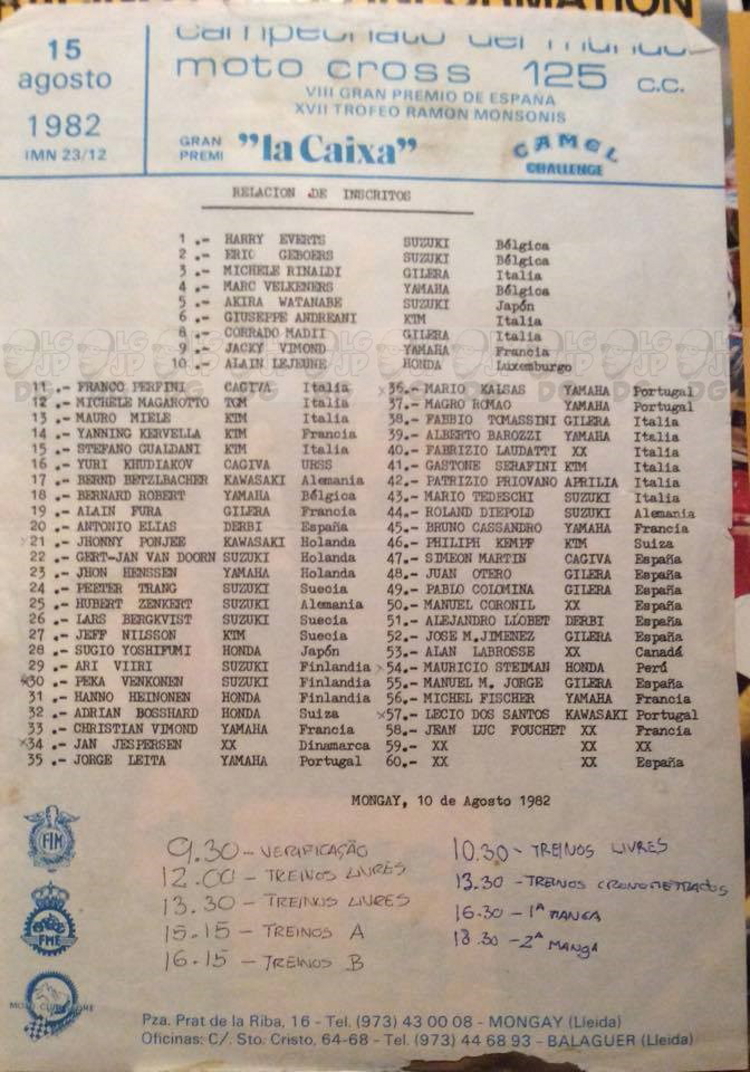 INFORMATION
15
agosto
1982
IMN 23/12
campeonato del mundo
moto cross 125 c.c.
VIII GRAN PREMIO DE ESPAÑA
XVII TROFEO RAMON MONSONIS
GRAN PREMI "la Caixa"
CAMEL
CHALLENGE
RELACION DE INSCRITOS
1 .- HARRY EVERTS SUZUKI Bélgica
2 .- ERIC GEBOERS SUZUKI Bélgica
3 .- MICHELE RINALDI GILERA Italia
4 .- MARC VELKENERS YAMAHA Bélgica
5 .- AKIRA WATANABE SUZUKI Japón
6 .- GIUSEPPE ANDREANI KTM Italia
8 .- CORRADO MADII GILERA Italia
9 .- JACKY VIMOND YAMAHA Francia
10 .- ALAIN LEJEUNE HONDA Luxemburgo
11 .- FRANCO PERFINI CAGIVA Italia
12 .- MICHELE MAGAROTTO TGM Italia
13 .- MAURO MIELE KTM Italia
14 .- YANNING KERVELLA KTM Francia
15 .- STEFANO GUALDANI KTM Italia
16 .- YURI KHUDIAKOV CAGIVA URSS
17 .- BERND BETZLBACHER KAWASAKI Alemania
18 .- BERNARD ROBERT YAMAHA Bélgica
19 .- ALAIN FURA GILERA Francia
20 .- ANTONIO ELIAS DERBI España
21 .- JHONNY PONJEE KAWASAKI Holanda
22 .- GERT-JAN VAN DOORN SUZUKI Holanda
23 .- JHON HENSSEN YAMAHA Holanda
24 .- PEETER TRANG SUZUKI Suecia
25 .- HUBERT ZENKERT SUZUKI Alemania
26 .- LARS BERGKVIST SUZUKI Suecia
27 .- JEFF NILSSON KTM Suecia
28 .- SUGIO YOSHIFUMI HONDA Japón
29 .- ARI VIIRI SUZUKI Finlandia
x30 .- PEKA VENKONEN SUZUKI Finlandia
31 .- HANNO HEINONEN HONDA Finlandia
32 .- ADRIAN BOSSHARD HONDA Suiza
33 .- CHRISTIAN VIMOND YAMAHA Francia
x34 .- JAN JESPERSEN XX Dinamarca
35 .- JORGE LEITA YAMAHA Portugal
x36.- MARIO KALSAS YAMAHA Portugal
37.- MAGRO ROMAO YAMAHA Portugal
38.- FABBIO TOMASSINI GILERA Italia
39.- ALBERTO BAROZZI YAMAHA Italia
40.- FABRIZIO LAUDATTI XX Italia
41.- GASTONE SERAFINI KTM Italia
42.- PATRIZIO PRIOVANO APRILIA Italia
43.- MARIO TEDESCHI SUZUKI Italia
44.- ROLAND DIEPOLD SUZUKI Alemania
45.- BRUNO CASSANDRO YAMAHA Francia
46.- PHILIPH KEMPF KTM Suiza
47.- SIMEON MARTIN CAGIVA España
48.- JUAN OTERO GILERA España
49.- PABLO COLOMINA GILERA España
50.- MANUEL CORONIL XX España
51.- ALEJANDRO LLOBET DERBI España
52.- JOSE M.JIMENEZ GILERA España
53.- ALAN LABROSSE XX Canadá
54.- MAURICIO STEIMAN HONDA Perú
55.- MANUEL M. JORGE GILERA España
56.- MICHEL FISCHER YAMAHA Francia
x57.- LECIO DOS SANTOS KAWASAKI Portugal
58.- JEAN LUC FOUCHET XX Francia
59.- XX XX XX
60.- XX XX España
MONGAY, 10 de Agosto 1982
9.30 - VERIFICAÇÃO
12.00 - TREINOS LIVRES
13.30 - TREINOS LIVRES
15.15 - TREINOS A
16.15 - TREINOS B
10.30 - TREINOS LIVRES
13.30 - TREINOS CRONOMETRADOS
16.30 - 1ª MANGA
18.30 - 2ª MANGA
FIM
FME
Pza. Prat de la Riba, 16 - Tel. (973) 43 00 08 - MONGAY (Lleida)
Oficinas: C/. Sto. Cristo, 64-68 - Tel. (973) 44 68 93 - BALAGUER (Lleida)